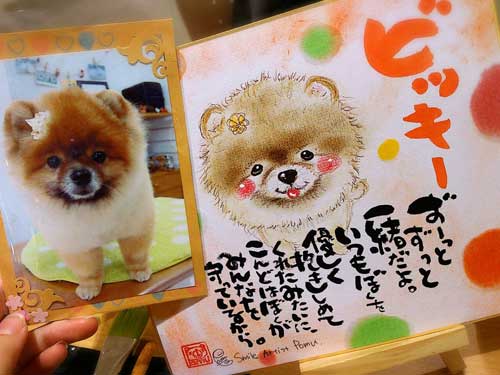 ビッキー
ずーっと
ずっと
一緒だよ。
いつもぼくを
優しく
抱きしめて
くれたみたいに
こんどはぼくが
みんなを
守っているから。
Smile Artist Pomu.